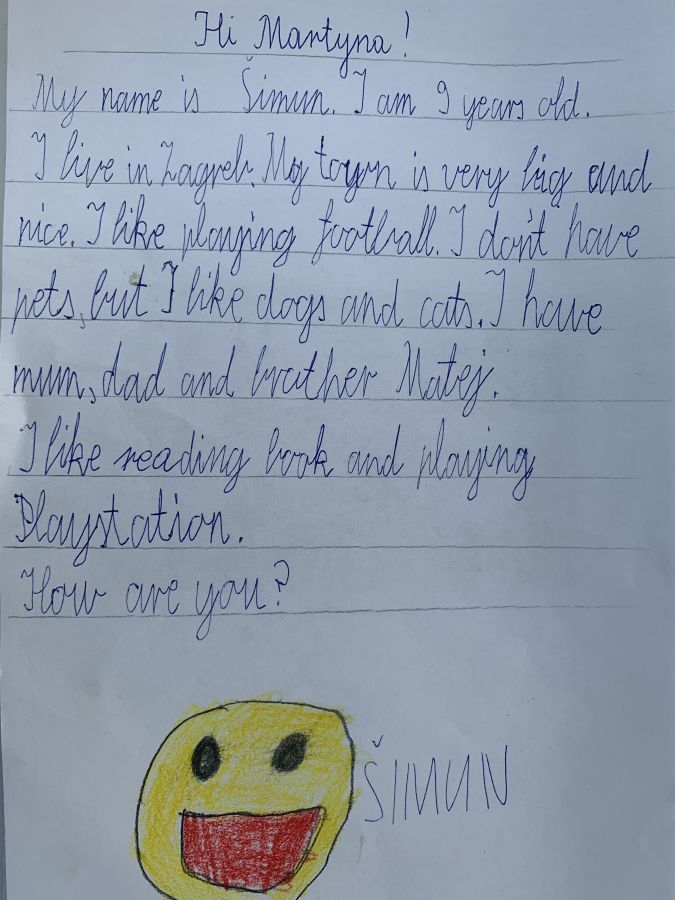 Hi Martyna!
My name is Šimun. I am 9 years old.
I live in Zagreb. My town is very big and
nice. I like playing football. I don't have
pets, but I like dogs and cats. I have
mum, dad and brother Matej.
I like reading book and playing
Playstation.
How are you?
ŠIMUN